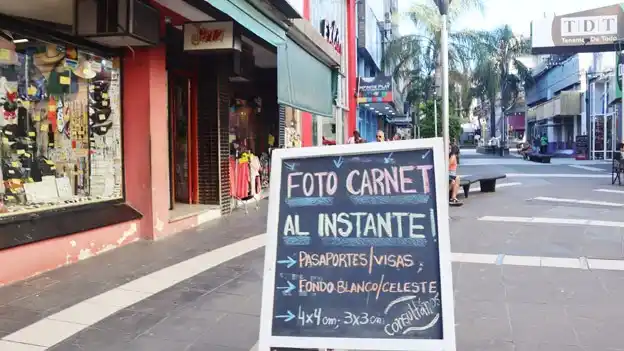 TDT
Tenemos De Todo
FOTO CARNET
AL INSTANTE!
→ PASAPORTES/VISAS
→ FONDO BLANCO/CELESTE
→ 4x4 cm, 3x3 cm
consultanos